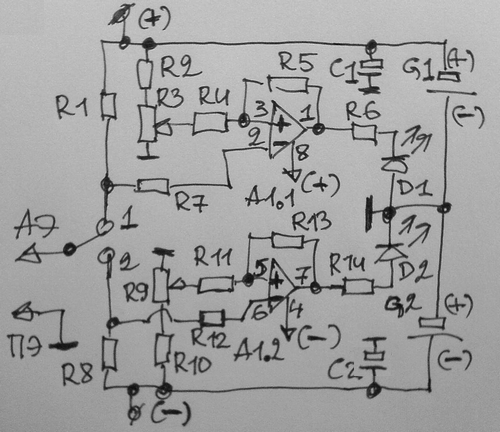 (+)
R2
R5
C1
G1
(+)
R1
R3
R4
3
1
R6
(-)
+
2
-
8
R7
A1.1
(+)
D1
АЭ
1
R13
2
R11
5
7
R14
D2
R9
+
6
4
G2
(+)
ПЭ
R12
(-)
R8
R10
A1.2
C2
(-)
(-)